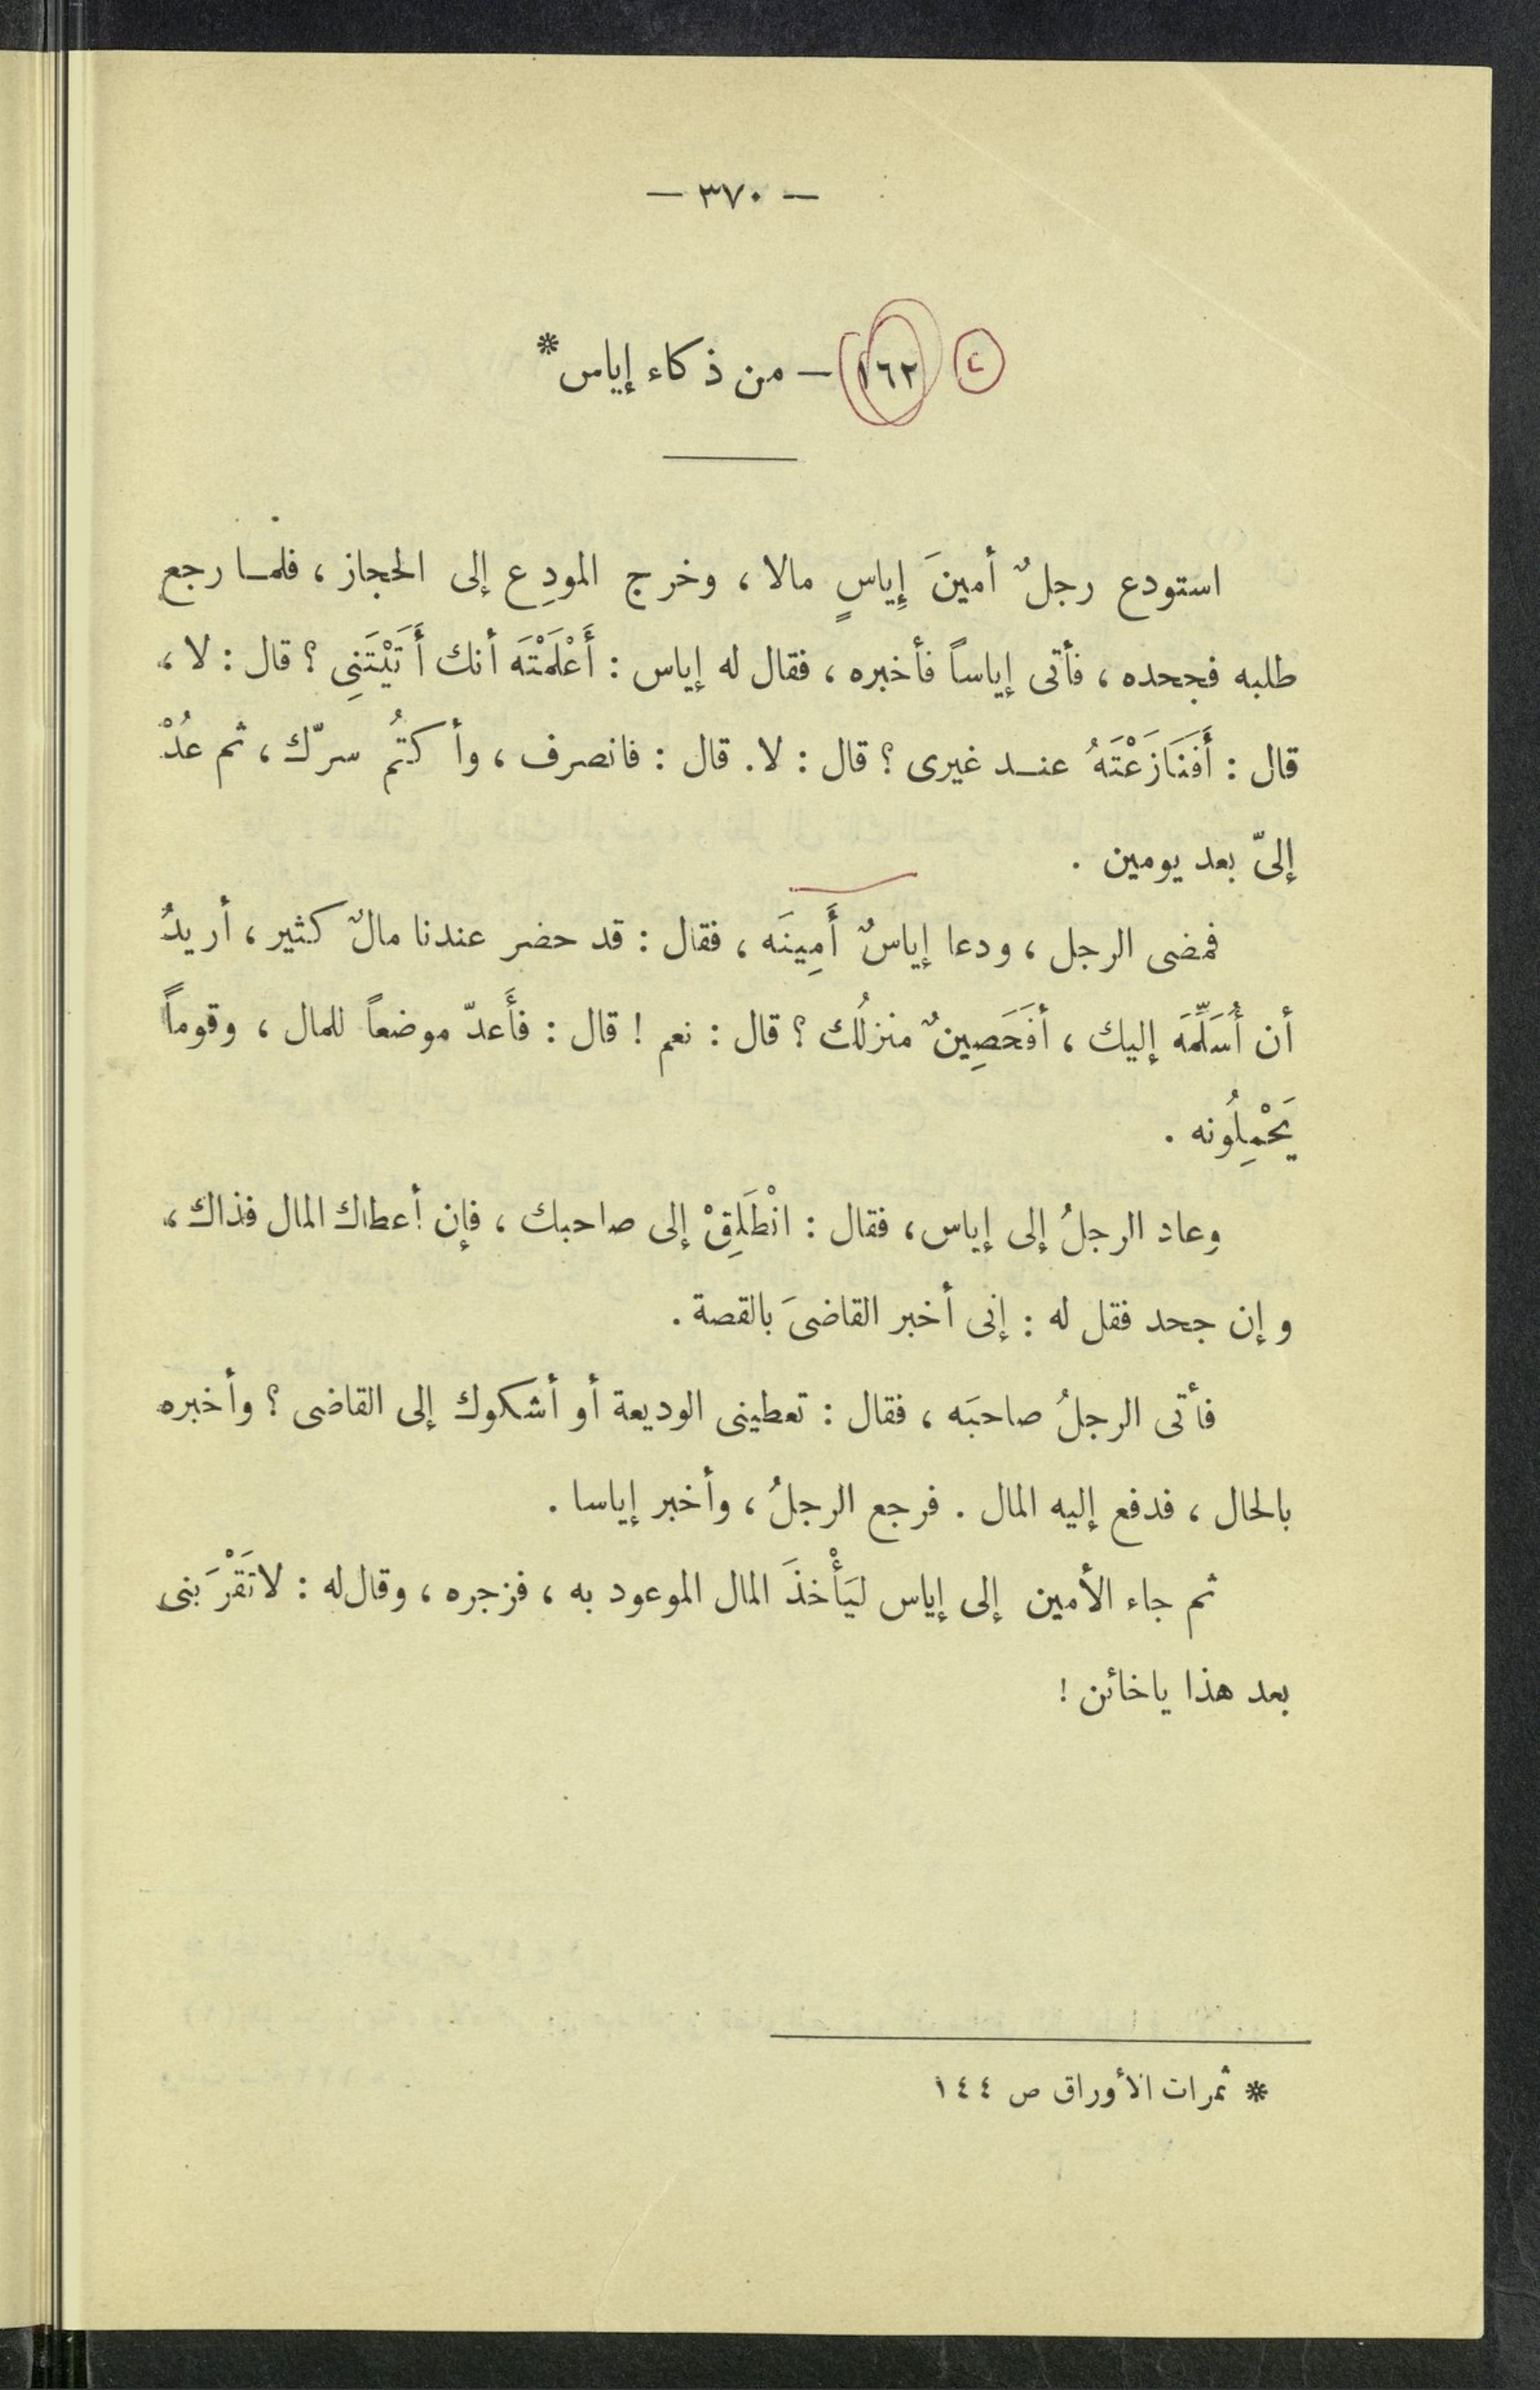 — ٣٧٠ —
١٦٢ — من ذكاء إياس*
استودع رجلٌ أمينَ إِياسٍ مالا ، وخرج المودِع إلى الحجاز ، فلما رجع
طلبه فجحده ، فأتى إياساً فأخبره ، فقال له إياس : أَعْلَمْتَه أنك أَتَيْتَنِى ؟ قال : لا ،
قال : أَفَنَازَعْتَهُ عنــد غيرى ؟ قال : لا . قال : فانصرف ، وأكتُم سرّك ، ثم عُدْ
إلىّ بعد يومين .
فمضى الرجل ، ودعا إياسٌ أَمِينَه ، فقال : قد حضر عندنا مالٌ كثير ، أريدُ
أن أُسَلِّمَه إليك ، أفَحَصِينٌ منزلُك ؟ قال : نعم ! قال : فأَعدّ موضعاً للمال ، وقوماً
يَحْمِلُونه .
وعاد الرجلُ إلى إياس ، فقال : انْطَلِقْ إلى صاحبك ، فإن أعطاك المال فذاك ،
وإن جحد فقل له : إنى أخبر القاضىَ بالقصة .
فأتى الرجلُ صاحبَه ، فقال : تعطينى الوديعة أو أشكوك إلى القاضى ؟ وأخبره
بالحال ، فدفع إليه المال . فرجع الرجلُ ، وأخبر إياسا .
ثم جاء الأمين إلى إياس ليَأْخذَ المال الموعود به ، فزجره ، وقال له : لا تَقْرَبنى
بعد هذا ياخائن !
* ثمرات الأوراق ص ١٤٤